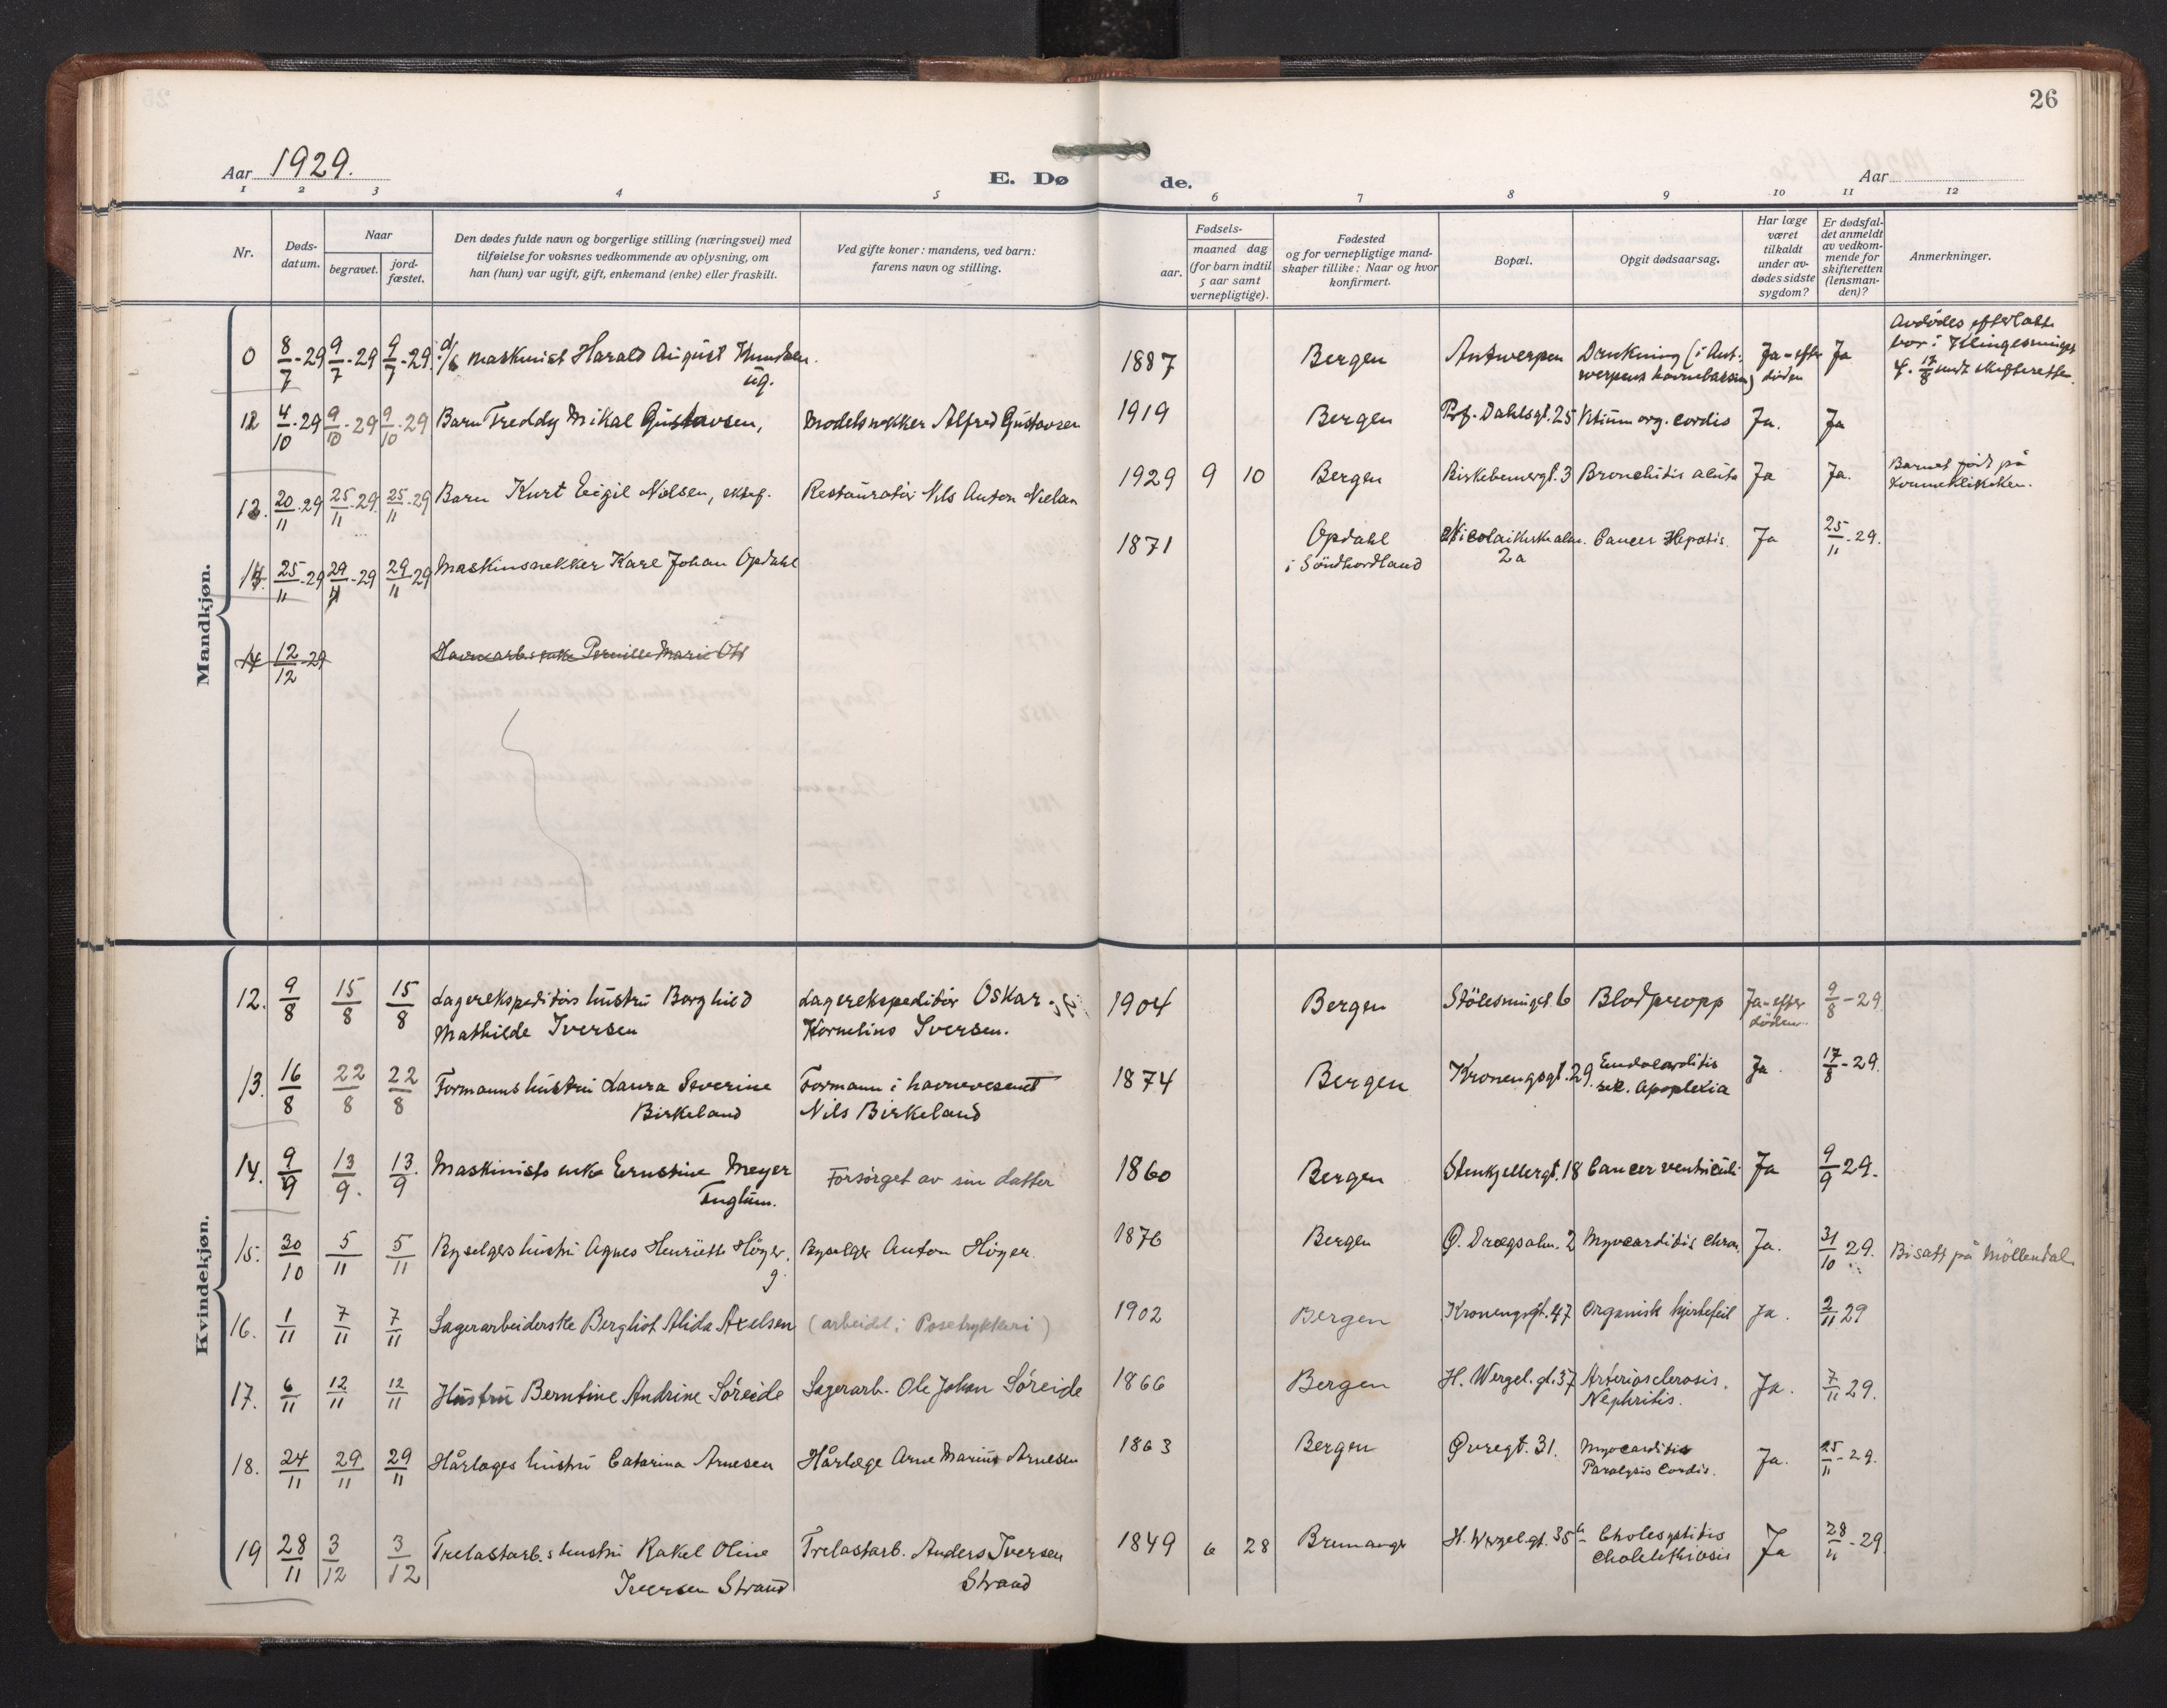 26
Aar 1929.
E. Dø de.
Aar
1 2 3 4 5 6 7 8 9 10 11 12
Nr.
Døds-
datum.
Naar
begravet.
jord-
fæstet.
Den dødes fulde navn og borgerlige stilling (næringsvei) med
tilføielse for voksnes vedkommende av oplysning, om
han (hun) var ugift, gift, enkemand (enke) eller fraskilt.
Ved gifte koner: mandens, ved barn:
farens navn og stilling.
Fødsels-
aar.
maaned dag
(for barn indtil
5 aar samt
vernepligtige).
Fødested
og for vernepligtige mand-
skaper tillike: Naar og hvor
konfirmert.
Bopæl.
Opgit dødsaarsag.
Har læge
været
tilkaldt
under av-
dødes sidste
sygdom?
Er dødsfal-
det anmeldt
av vedkom-
mende for
skifteretten
(lensman-
den)?
Anmerkninger.
Mandkjøn.
0 8/7-29 9/7-29 9/7-29 maskinist Harald August Knudsen. 1887 Bergen Antwerpen Drukning (i Ant- Ja-efter Ja Avdødes
ug. werpens havnebassin) døden
12 4/10-29 9/10-29 9/10-29 Barn Freddy Mikal Gustavsen, Modelsnekker Alfred Gustavsen 1919 Bergen Prof. Dahlsgt. 25 Vitium org. cordis Ja. Ja
13. 20/11-29 25/11-29 25/11-29 Barn Kurt Eigil Nielsen, Restauratør Nils Anton Nielsen 1929 9 10 Bergen Birkebeinergt. 3 Bronchitis acuta Ja Ja. Barnet født på
Kvinneklinikken.
14. 25/11-29 29/11-29 29/11-29 Maskinsnekker Karl Johan Opdahl 1871 Opdahl Nicolaikirkealm. Cancer Hepatis Ja 25/11-29.
i Søndhordland 2a
14 12/12-29 Havnearb. enke Pernille Marie Ott
Kvindekjøn.
12. 9/8 15/8 15/8 Lagerekspeditørs hustru Borghild Lagerekspeditør Oskar 1904 Bergen Stølesmuget 6 Blodpropp Ja-efter 9/8-29
Mathilde Iversen Kornelius Iversen. døden.
13. 16/8 22/8 22/8 Formanns hustru Laura Severine Formann i havnevesenet 1874 Bergen Kronengsgt. 29. Endocarditis Ja 17/8-29.
Birkeland Nils Birkeland sek. Apoplexia
14. 9/9 13/9. 13/9. Maskinists enke Ernstine Meyer Forsørget av sin datter 1860 Bergen Stenkjellergt. 18 Cancer ventriculi Ja 9/9 29.
Fuglum.
15. 30/10 5/11 5/11 Byselgers hustru Agnes Henriette Höyer, Byselger Anton Höyer. 1876 Bergen Ø. Dragsalm. 2 Myocarditis chron. Ja. 31/10 29. Bisatt på Möllendal.
g.
16. 1/11 7/11 7/11 Lagerarbeiderske Bergliot Alida Axelsen (arbeidet i Posetrykkeri) 1902 Bergen Kronengsgt. 47 Organisk hjertefeil Ja. 2/11 29
17. 6/11 12/11 12/11 Hustru Berntine Andrine Söreide Lagerarb. Ole Johan Söreide 1866 Bergen H. Wergel. gt. 37 Arteriosclerosis. Ja. 7/11 29.
Nephritis.
18. 24/11 29/11 29/11 Hårlæges hustru Catarina Arnesen Hårlæge Arne Marius Arnesen 1863 Bergen Øvregt. 31. Myocarditis Ja. 25/11-29.
Paralysis Cordis.
19 28/11 3/12 3/12 Trelastarb.s hustru Rakel Oline Trelastarb. Anders Iversen 1849 6 28 Bremanger H. Wergel. gt. 35 Cholesystitis Ja 28/11-29.
Iversen Strand Strand Cholelithiasis